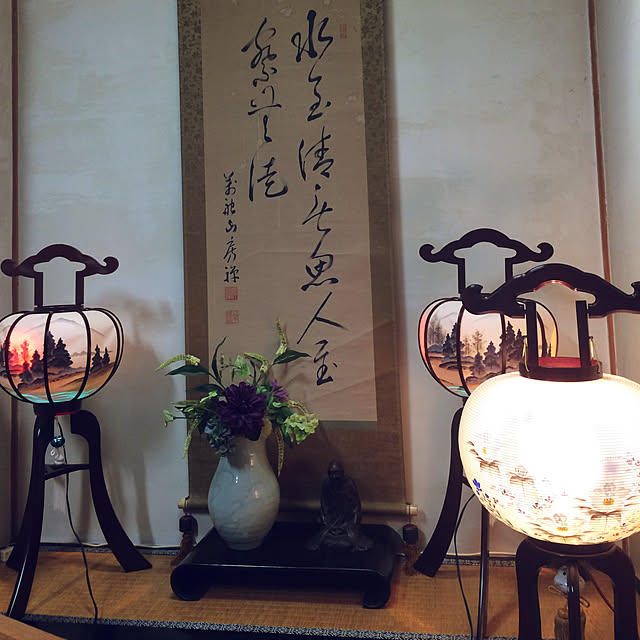 水至清無魚人至
察無徒
山房